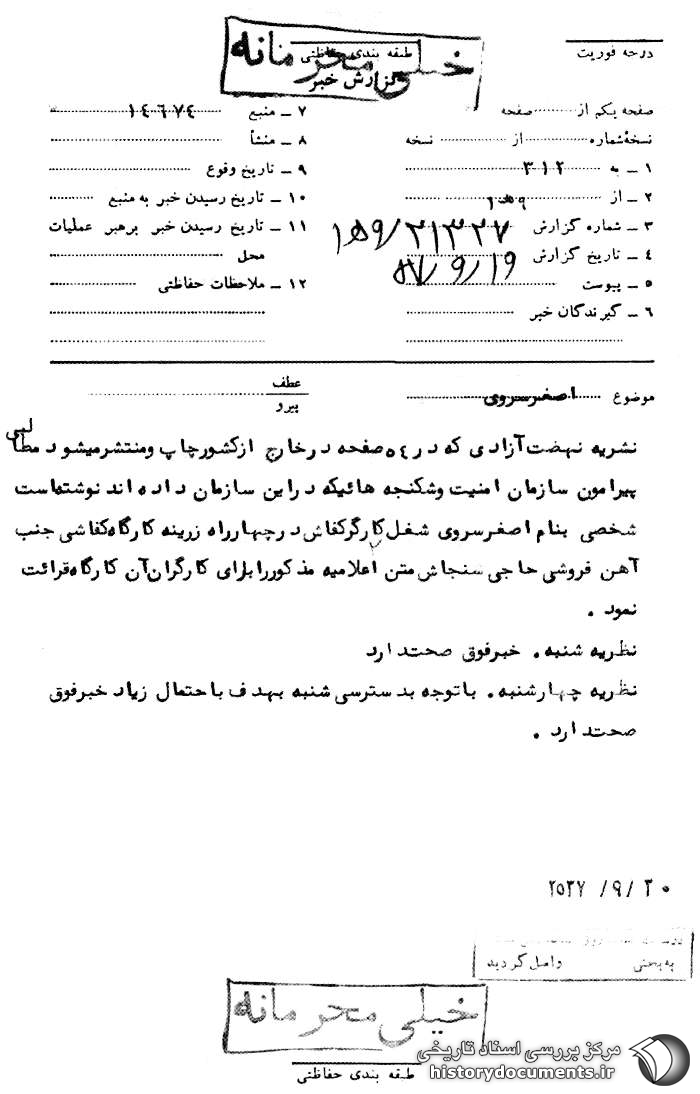 خیلی محرمانه
طبقه بندی حفاظتی
گزارش خبر
درجه فوریت
صفحه یکم از صفحه
نسخهٔ شماره از نسخه
۱ ـ به ۳۱۲
۲ ـ از ۱۵۹
۳ ـ شماره گزارش ۱۵۹/۲۱۳۲۷
۴ ـ تاریخ گزارش ۵۷/۹/۱۹
۵ ـ پیوست
۶ ـ گیرندگان خبر
۷ ـ منبع ۱۴۶۷۴
۸ ـ منشأ
۹ ـ تاریخ وقوع
۱۰ ـ تاریخ رسیدن خبر به منبع
۱۱ ـ تاریخ رسیدن خبر برهبر عملیات
محل
۱۲ ـ ملاحظات حفاظتی
موضوع اصغرسروی
عطف
پیرو
نشریه نهضت آزادی که در ٥٤ صفحه در خارج از کشور چاپ و منتشر میشود مطالبی
پیرامون سازمان امنیت و شکنجه هائیکه در این سازمان داده اند نوشته است
شخصی بنام اصغرسروی شغل کارگر کفاش در چهارراه زرینه کارگاه کفاشی جنب
آهن فروشی حاجی سنجاش متن اعلامیه مذکور را برای کارگران آن کارگاه قرائت
نمود .
نظریه شنبه. خبر فوق صحت دارد
نظریه چهارشنبه. با توجه بدسترسی شنبه بهدف باحتمال زیاد خبر فوق
صحت دارد .
۲۵۳۷ /۹/ ۲۰
به بخش واصل گردید
خیلی محرمانه
طبقه بندی حفاظتی
مرکز بررسی اسناد تاریخی
historydocuments.ir